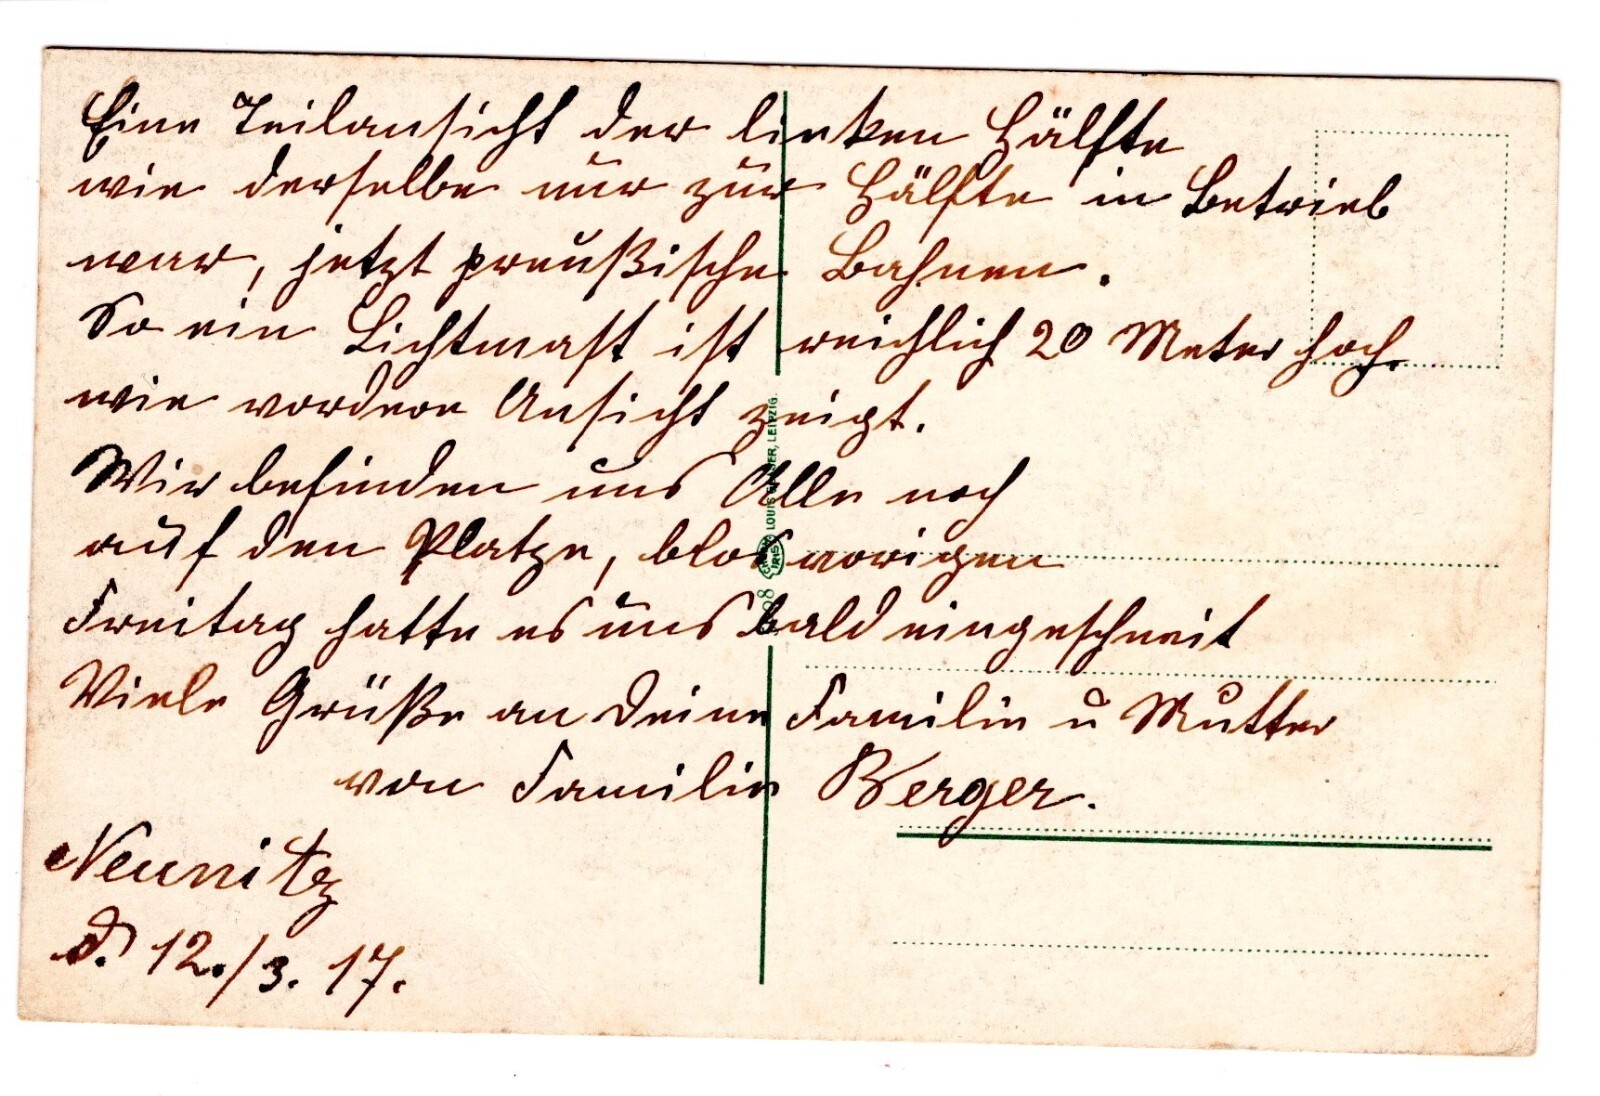 Eine Teilansicht der linken Hälfte
wie derselbe nur zur Hälfte in Betrieb
war, jetzt preußische Bahnen.
So ein Lichtmast ist reichlich 20 Meter hoch.
wie vordere Ansicht zeigt.
Wir befinden uns Alle noch
auf den Platze, blos vorigen
Freitag hatte es uns bald eingeschneit
Viele Grüße an Deine Familie u Mutter
von Familie Berger.
Neunitz
d. 12./3. 17.
LEIPZIG.
IRIS